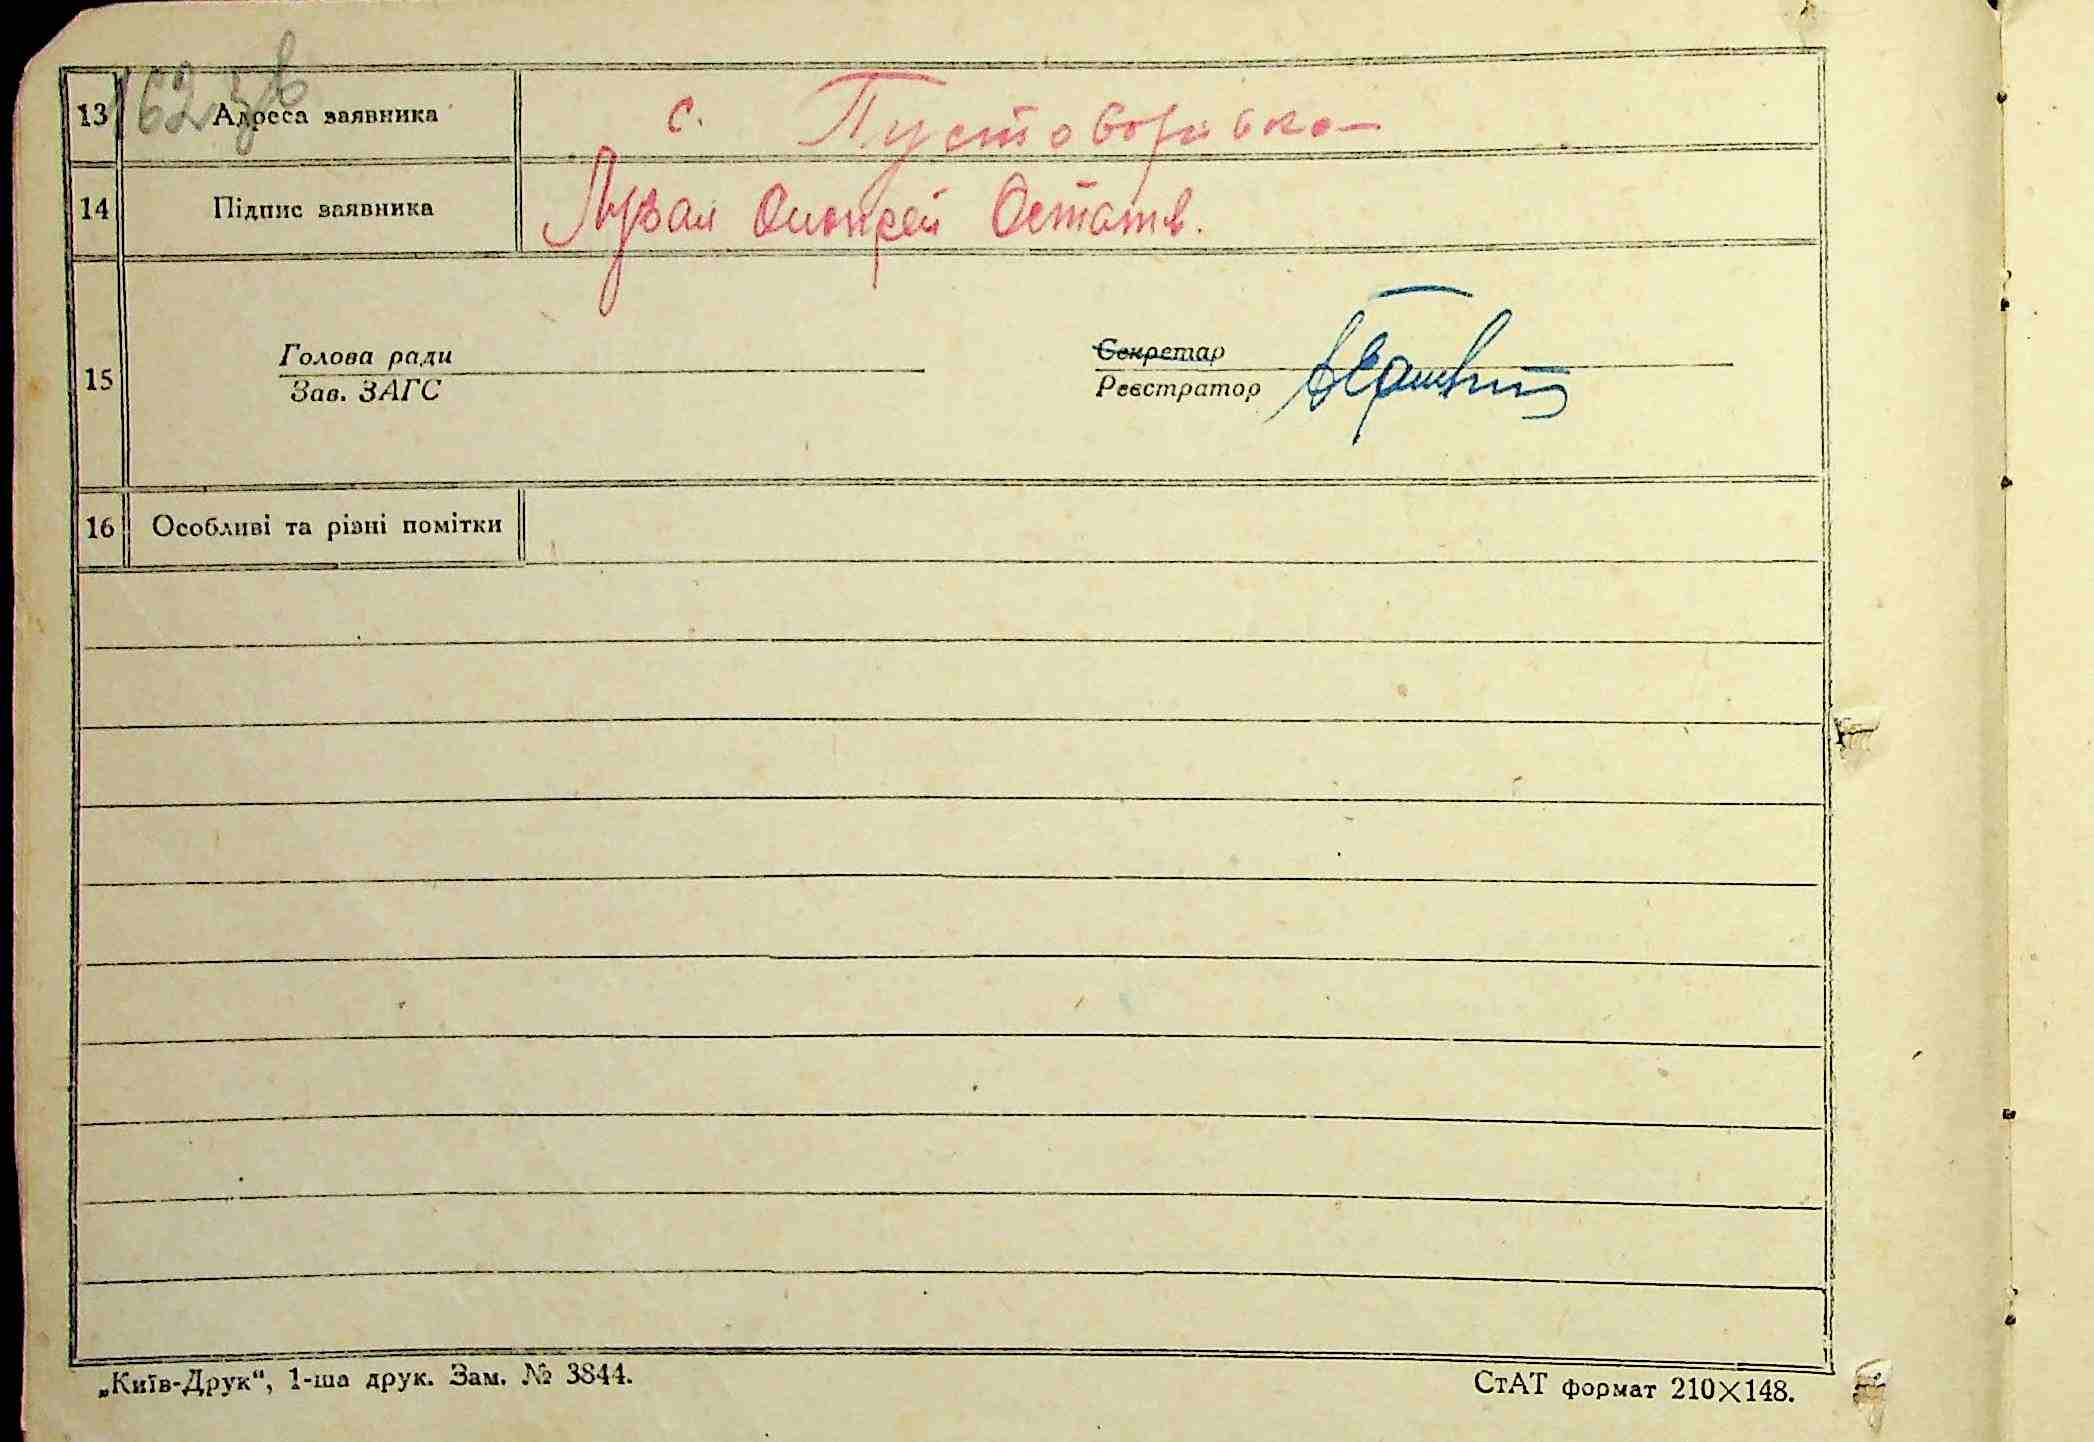 13 Адреса заявника с. Пустоворівка
14 Підпис заявника Остатів.
15
Голова ради Секретар
Зав. ЗАГС Реєстратор
16 Особливі та різні помітки
„Київ-Друк“, 1-ша друк. Зам. № 3844. СтАТ формат 210×148.